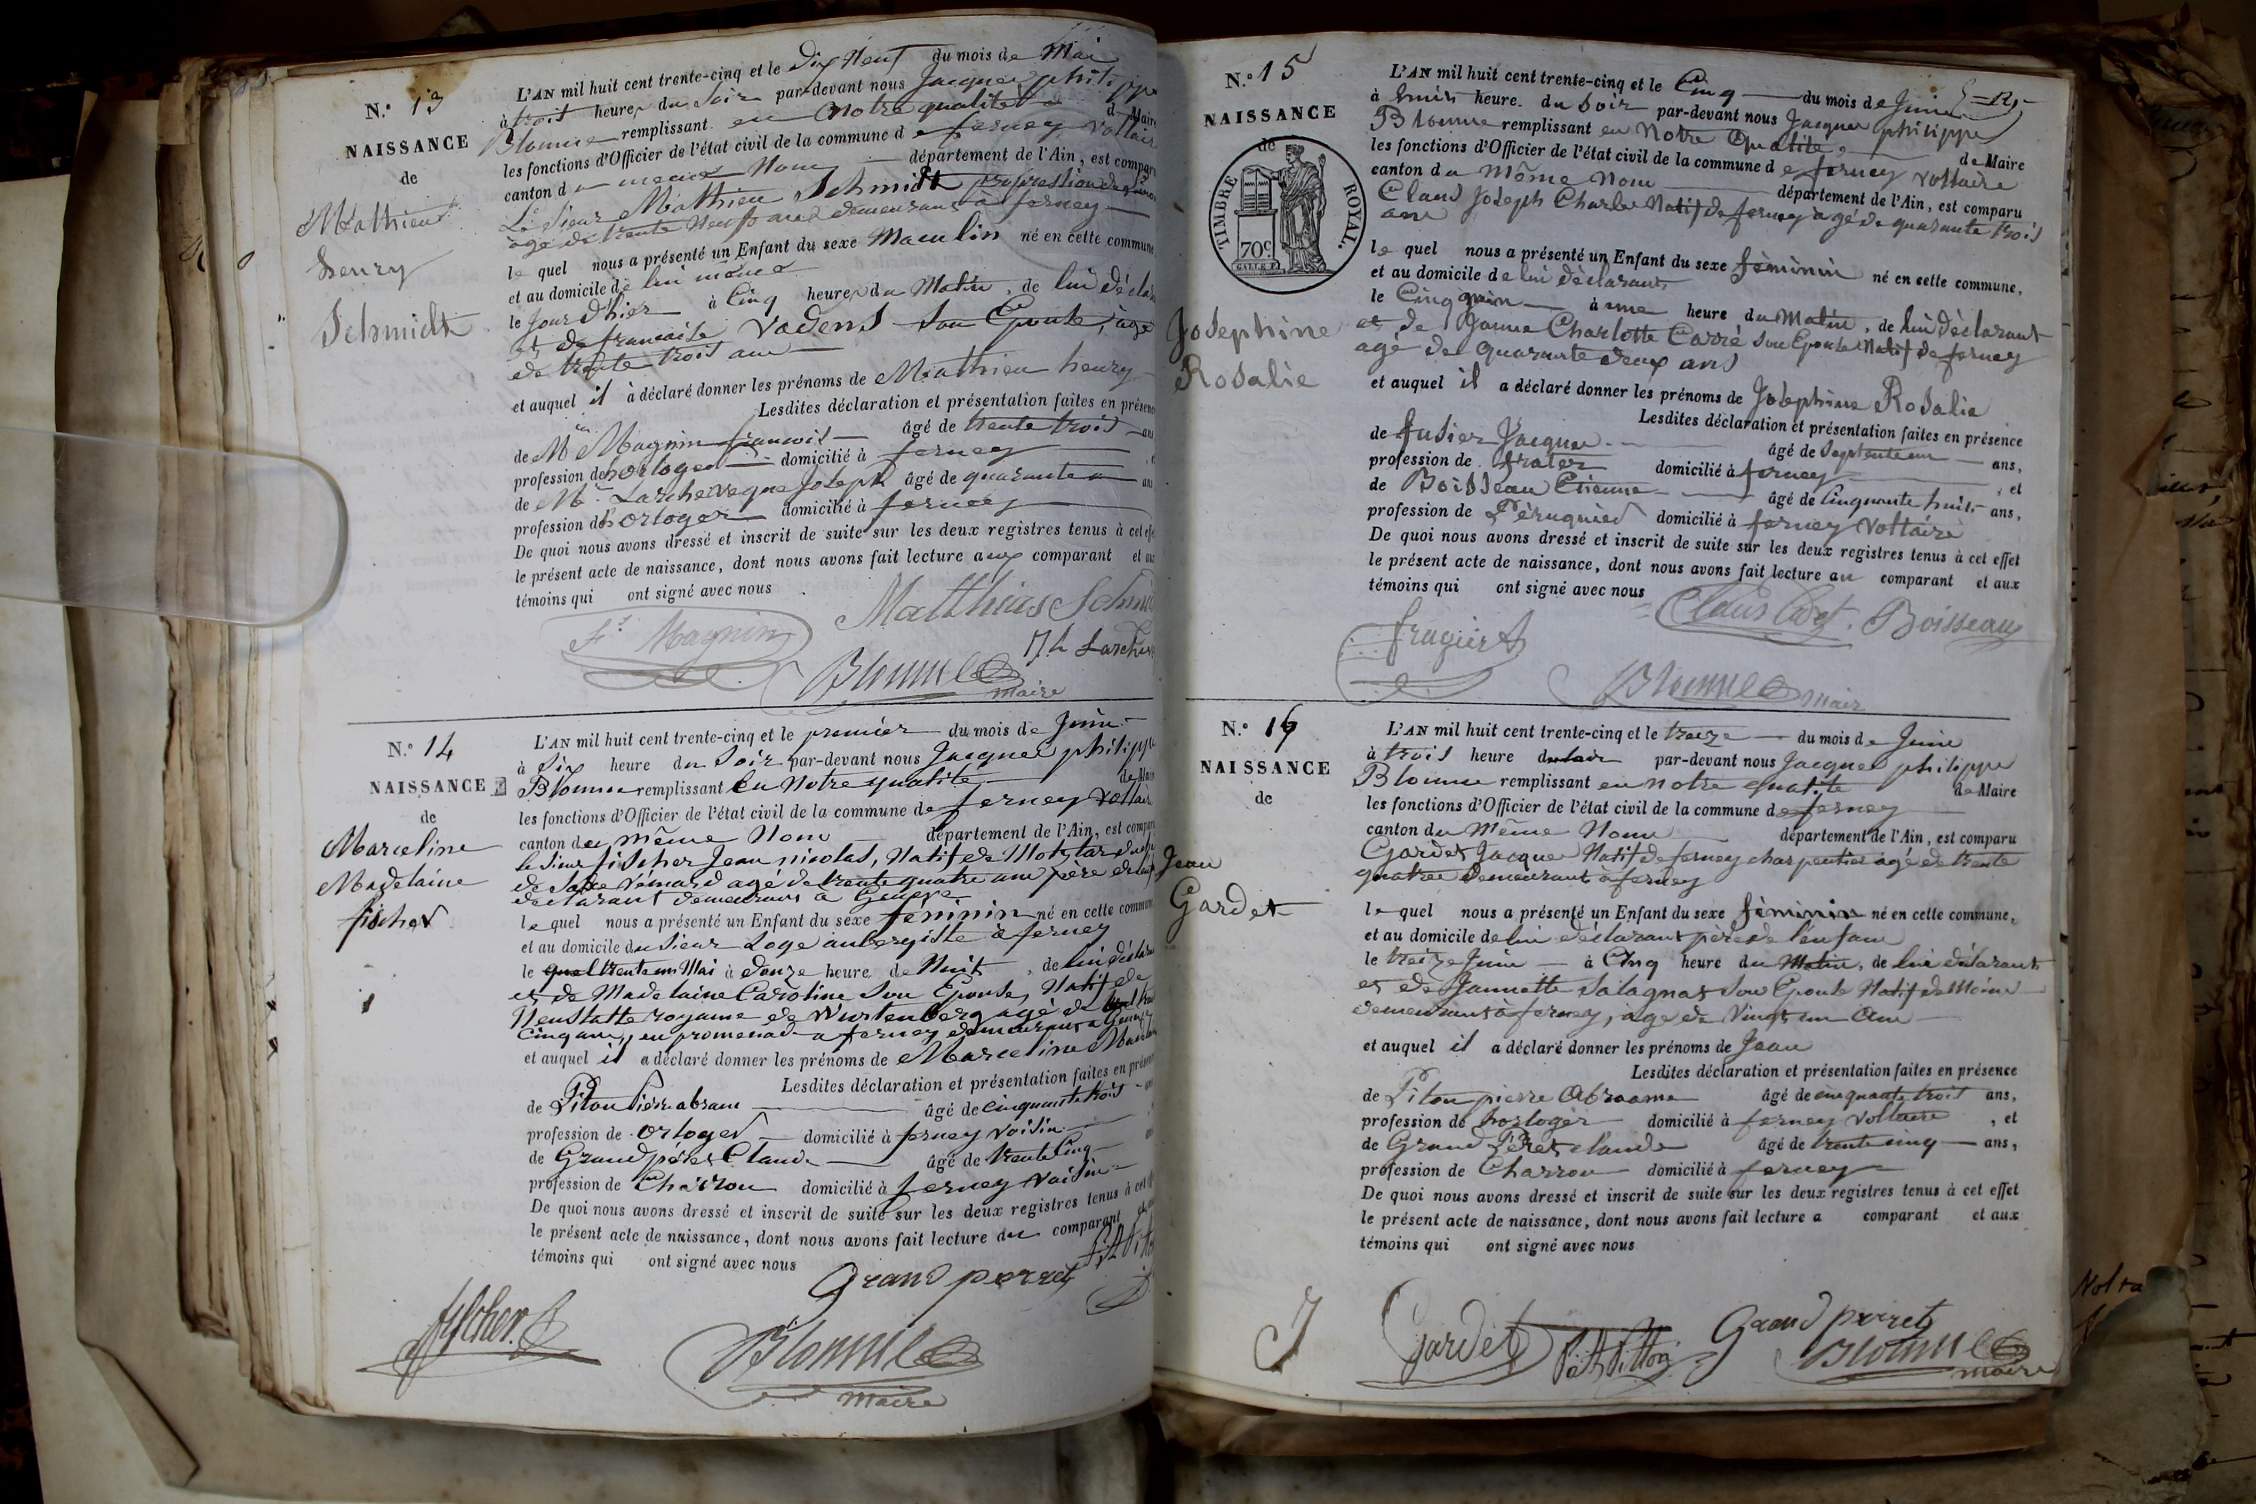 N.° 13
NAISSANCE
de
Mathieu
henry
Schmidt
L'AN mil huit cent trente-cinq et le Dix Neuf du mois de Mai
à troit heures du Soir par-devant nous Jacques philippe
Blonne remplissant en Notre qualité de Maire
les fonctions d'Officier de l'état civil de la commune de ferney Voltair
canton du meme Nom département de l'Ain, est compar
Le Sieur Mathieu Schmidt profession de
agé de trente Neuf ans demeurant à ferney
le quel nous a présenté un Enfant du sexe Masculin né en cette commune
et au domicile de lui même
le Jour d'hier à Cinq heures du Matin, de lui déclar
et de francoise Vadens Son Epouse, agé
de trente trois ans
et auquel il à déclaré donner les prénoms de Mathieu henry
Lesdites déclaration et présentation faites en présen
de Mr Magnin francois âgé de trente trois ans
profession de horloger domicilié à ferney
de Mr Larcheveque Joseph âgé de quarante ans
profession d'horloger domicilié à ferney
De quoi nous avons dressé et inscrit de suite sur les deux registres tenus à cet effe
le présent acte de naissance, dont nous avons fait lecture aux comparant et aux
témoins qui ont signé avec nous
Matthias Schmi
Fs Magnin
Blonne
maire
N.° 14
NAISSANCE
de
Marceline
Madelaine
fischer
L'AN mil huit cent trente-cinq et le premier du mois de Juin
à Six heure du Soir par-devant nous Jacques philippe
Blonne remplissant en Notre qualité de Maire
les fonctions d'Officier de l'état civil de la commune de ferney Voltair
canton du même Nom département de l'Ain, est compar
le Sieur fischer Jean nicolas, Natif de
de Saxe agé de trente quatre ans pere
declarant demeurant a Genève
le quel nous a présenté un Enfant du sexe feminin né en cette commun
et au domicile du Sieur Loge aubergiste à ferney
le trente un Mai à douze heure de Nuit, de lui déclar
et de Madelaine Caroline Son Epouse, Natif de
Neustatte royaume de Wurtenberg agé de
Cinq ans, en promenade a ferney demeurant a
et auquel il a déclaré donner les prénoms de Marceline
Lesdites déclaration et présentation faites en présen
de Piton Pierre abram âgé de cinquante trois
profession de orloger domicilié à ferney Voisin
de Grand péret Claude âgé de trente Cinq
profession de Charron domicilié à ferney Voisin
De quoi nous avons dressé et inscrit de suite sur les deux registres tenus à cet
le présent acte de naissance, dont nous avons fait lecture du comparant
témoins qui ont signé avec nous
Grand perret
fischer
Blonne
maire
N.° 15
NAISSANCE
de
TIMBRE ROYAL.
70c.
Josephine
Rosalie
L'AN mil huit cent trente-cinq et le Cinq du mois de Juin
à huit heure du Soir par-devant nous Jacques philippe
Blonne remplissant en Notre qualité, de Maire
les fonctions d'Officier de l'état civil de la commune de ferney Voltaire
canton du Même Nom département de l'Ain, est comparu
Claus Joseph Charles Natif de ferney agé de quarante trois
ans
le quel nous a présenté un Enfant du sexe féminin né en cette commune,
et au domicile de lui déclarant
le Cinq juin à une heure du Matin, de lui déclarant
et de Jeanne Charlotte Carré Son Epouse Natif de ferney
agé de quarante deux ans
et auquel il a déclaré donner les prénoms de Josephine Rosalie
Lesdites déclaration et présentation faites en présence
de fusier Jacques âgé de ans,
profession de frater domicilié à ferney, et
de Boisseau Etienne âgé de Cinquante huit ans,
profession de Péruquier domicilié à ferney Voltaire
De quoi nous avons dressé et inscrit de suite sur les deux registres tenus à cet effet
le présent acte de naissance, dont nous avons fait lecture au comparant et aux
témoins qui ont signé avec nous
Boisseau
Blonne maire
N.° 16
NAISSANCE
de
Jean
Gardet
L'AN mil huit cent trente-cinq et le treize du mois de Juin
à trois heure du soir par-devant nous Jacques philippe
Blonne remplissant en notre qualité de Maire
les fonctions d'Officier de l'état civil de la commune de ferney
canton du Même Nom département de l'Ain, est comparu
Gardet Jacques Natif de ferney charpentier agé de trente
quatre demeurant à ferney
le quel nous a présenté un Enfant du sexe féminin né en cette commune,
et au domicile de lui déclarant père de l'enfant
le treize Juin à Cinq heure du Matin, de lui déclarant
et de Jannette Salagnat Son Epouse Natif de Même
demeurant à ferney, age de Vingt un ans
et auquel il a déclaré donner les prénoms de Jean
Lesdites déclaration et présentation faites en présence
de Piton pierre Abraame âgé de cinquante trois ans,
profession de horloger domicilié à ferney Voltaire, et
de Grand Péret claude âgé de trente cinq ans,
profession de Charron domicilié à ferney
De quoi nous avons dressé et inscrit de suite sur les deux registres tenus à cet effet
le présent acte de naissance, dont nous avons fait lecture a comparant et aux
témoins qui ont signé avec nous
Gardet
Grand perret
Blonne
maire